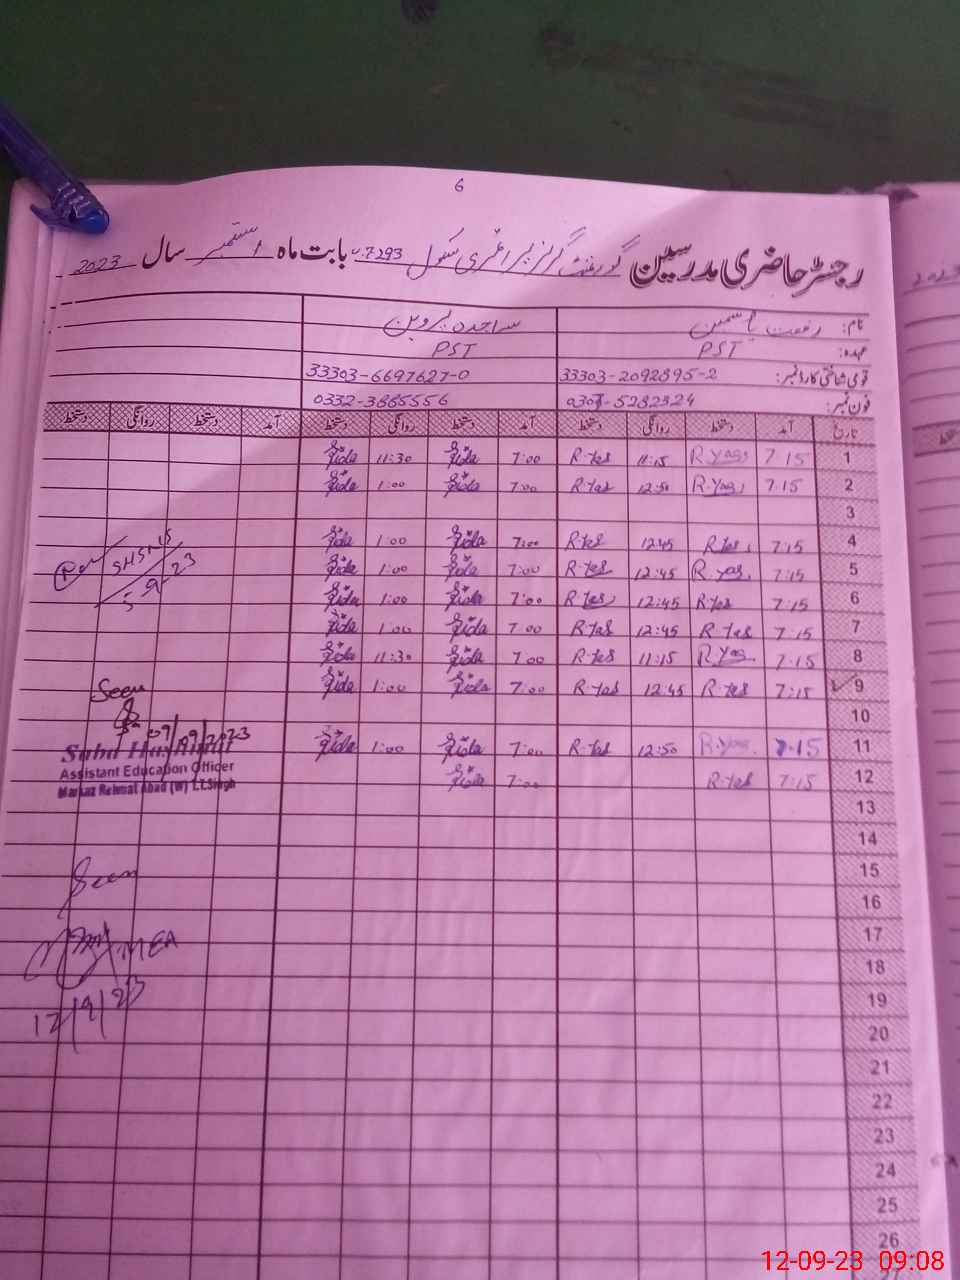 6
رجسٹر حاضری مدرسین گورنمنٹ گرلز پرائمری سکول 7293 بابت ماہ ستمبر سال 2023
نام: رفعت یاسمین ساجدہ پروین
عہدہ: PST PST
قومی شناختی کارڈ نمبر: 33303-2092895-2 33303-6697627-0
فون نمبر: 5282324 0332-3885556
تاریخ آمد دستخط روانگی دستخط آمد دستخط روانگی دستخط آمد دستخط روانگی دستخط
1 7.15 R.Yas 11:15 R.Yas 7:00 11:30
2 7.15 R.Yas 12:50 R.Yas 7:00 1:00
3
4 7:15 R.Yas 12:45 R.Yas 7:00 1:00
5 7:15 R.Yas 12:45 R.Yas 7:00 1:00
6 7:15 R.Yas 12:45 R.Yas 7:00 1:00
7 7:15 R.Yas 12:45 R.Yas 7:00 1:00
8 7:15 R.Yas 11:15 R.Yas 7:00 11:30
9 7:15 R.Yas 12:45 R.Yas 7:00 1:00
10
11 7:15 R.Yas 12:50 R.Yas 7:00 1:00
12 7:15 R.Yas 7:00
13
14
15
16
17
18
19
20
21
22
23
24
25
26
27
5-9-23
Seen
09/09/2023
Assistant Education Officer
Markaz Rehmat Abad (W) T.T.Singh
Seen
MEA
12/9/23
2023
12-09-23 09:08